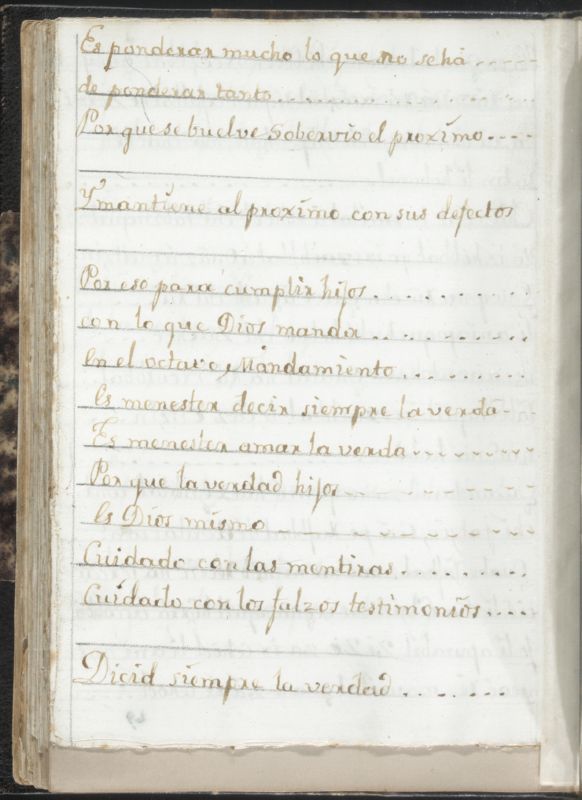 Es ponderar mucho lo que no se há ....
de ponderar tanto ........
Por que se buelve Sobervio el proximo ....
Y mantiene al proximo con sus defectos
Por eso para cumplir hijos ........
con lo que Dios manda ........
en el octavo Mandamiento ........
Es menester decir siempre la verda-
Es menester amar la verda ........
Por que la verdad hijos ........
Es Dios mismo ........
Cuidado con las mentiras ........
Cuidado con los falzos testimonios ....
Dicid siempre la verdad ........